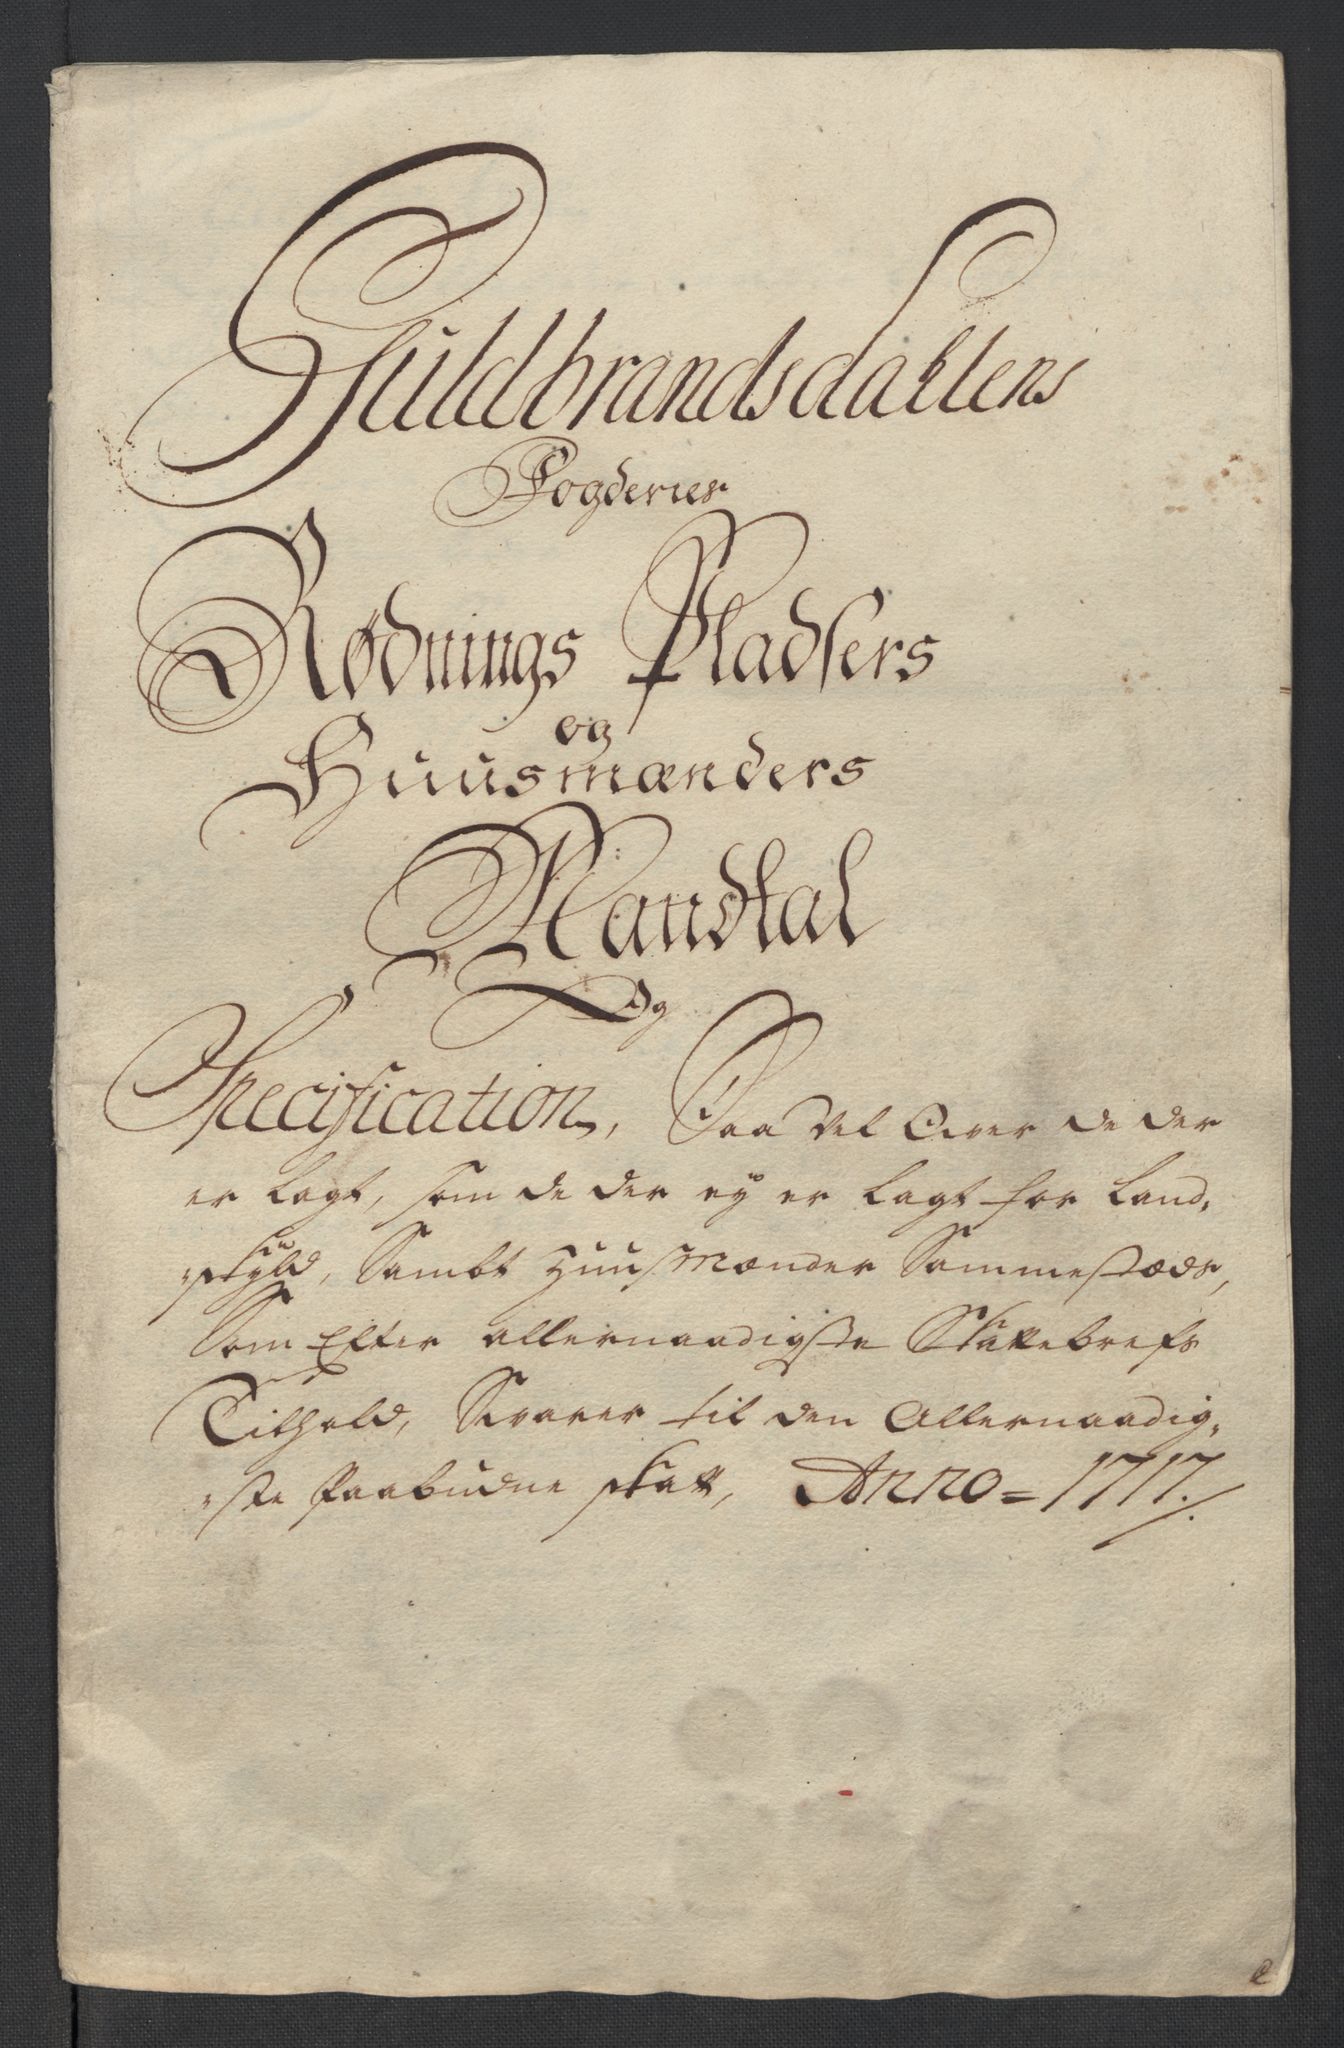 Guldbrandsdahlens
Fogderies
Rødnings Pladsers
og
Huusmænders
Mandtal
Og
Specification, Saa vel over de der
er lagt, som de der ey er lagt for land,
skyld, Sambt Huusmænder Sammestæds,
Som Efter allernaadigste Skattebrefs
Tilhold, Svarer til den Allernaadig,
ste Paabudne skatt, Anno = 1717./.